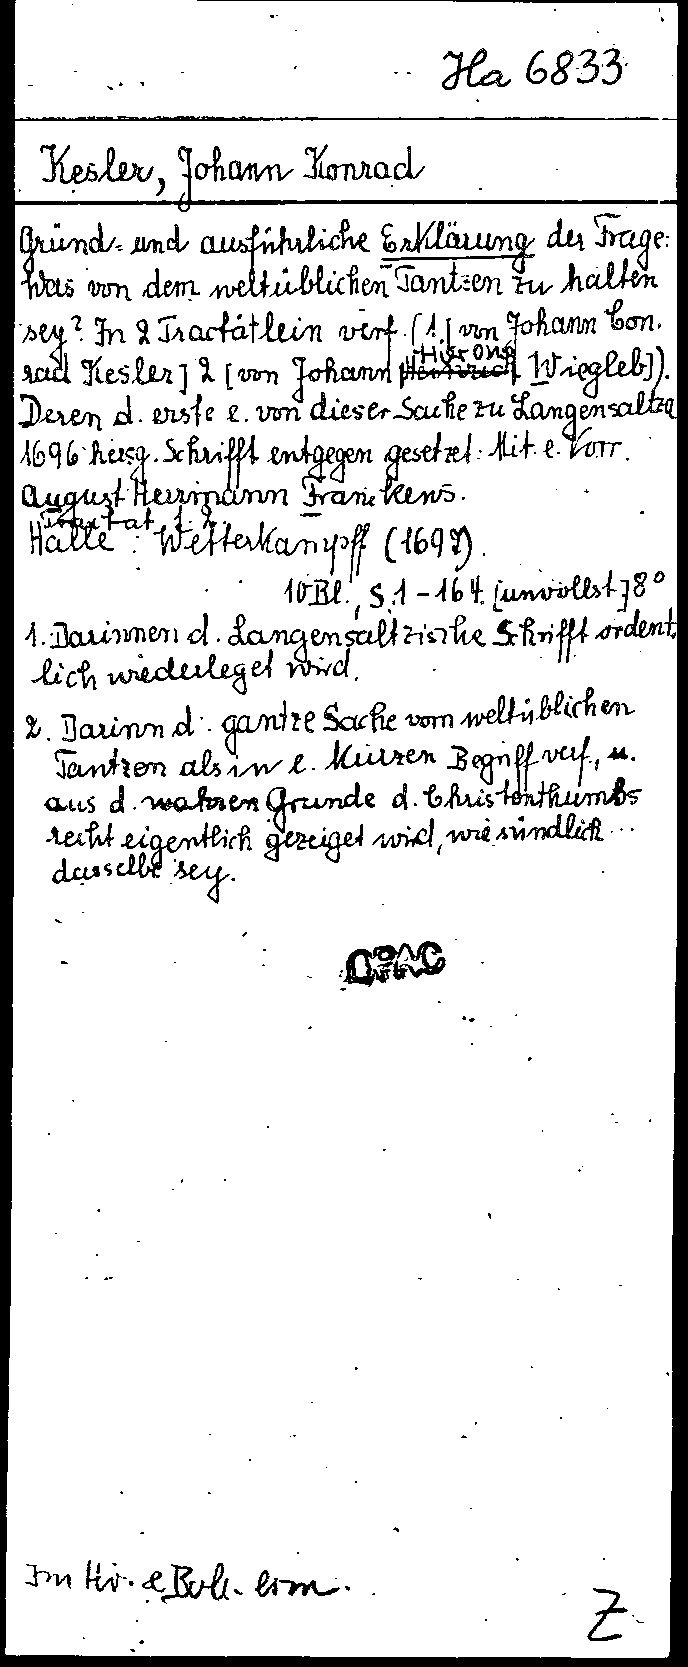 Ha 6833
Kesler, Johann Konrad
Gründ- und ausführliche Erklärung der Frage:
Was von dem weltüblichen Tantzen zu halten
sey? In 2 Tractätlein verf. (1. [von Johann Con-
rad Kesler] 2 [von Johann Hieron. Wiegleb]).
Deren d. erste e. von dieser Sache zu Langensaltza
1696 hersg. Schrifft entgegen gesetzet. Mit e. Vorr.
August Herrmann Franckens.
Tractat 1. 2.
Halle: Wetterkampff (1697).
10 Bl., S. 1-164. [unvollst] 8°
1. Darinnen d. Langensaltzische Schrifft ordent-
lich wiederleget wird.
2. Darinn d. gantze Sache vom weltüblichen
Tantzen als in e. Kurzen Begriff verf., u.
aus d. wahren Grunde d. Christenthumbs
recht eigentlich gezeiget wird, wie sündlich ...
dasselbe sey.
OPAC
Im
Z